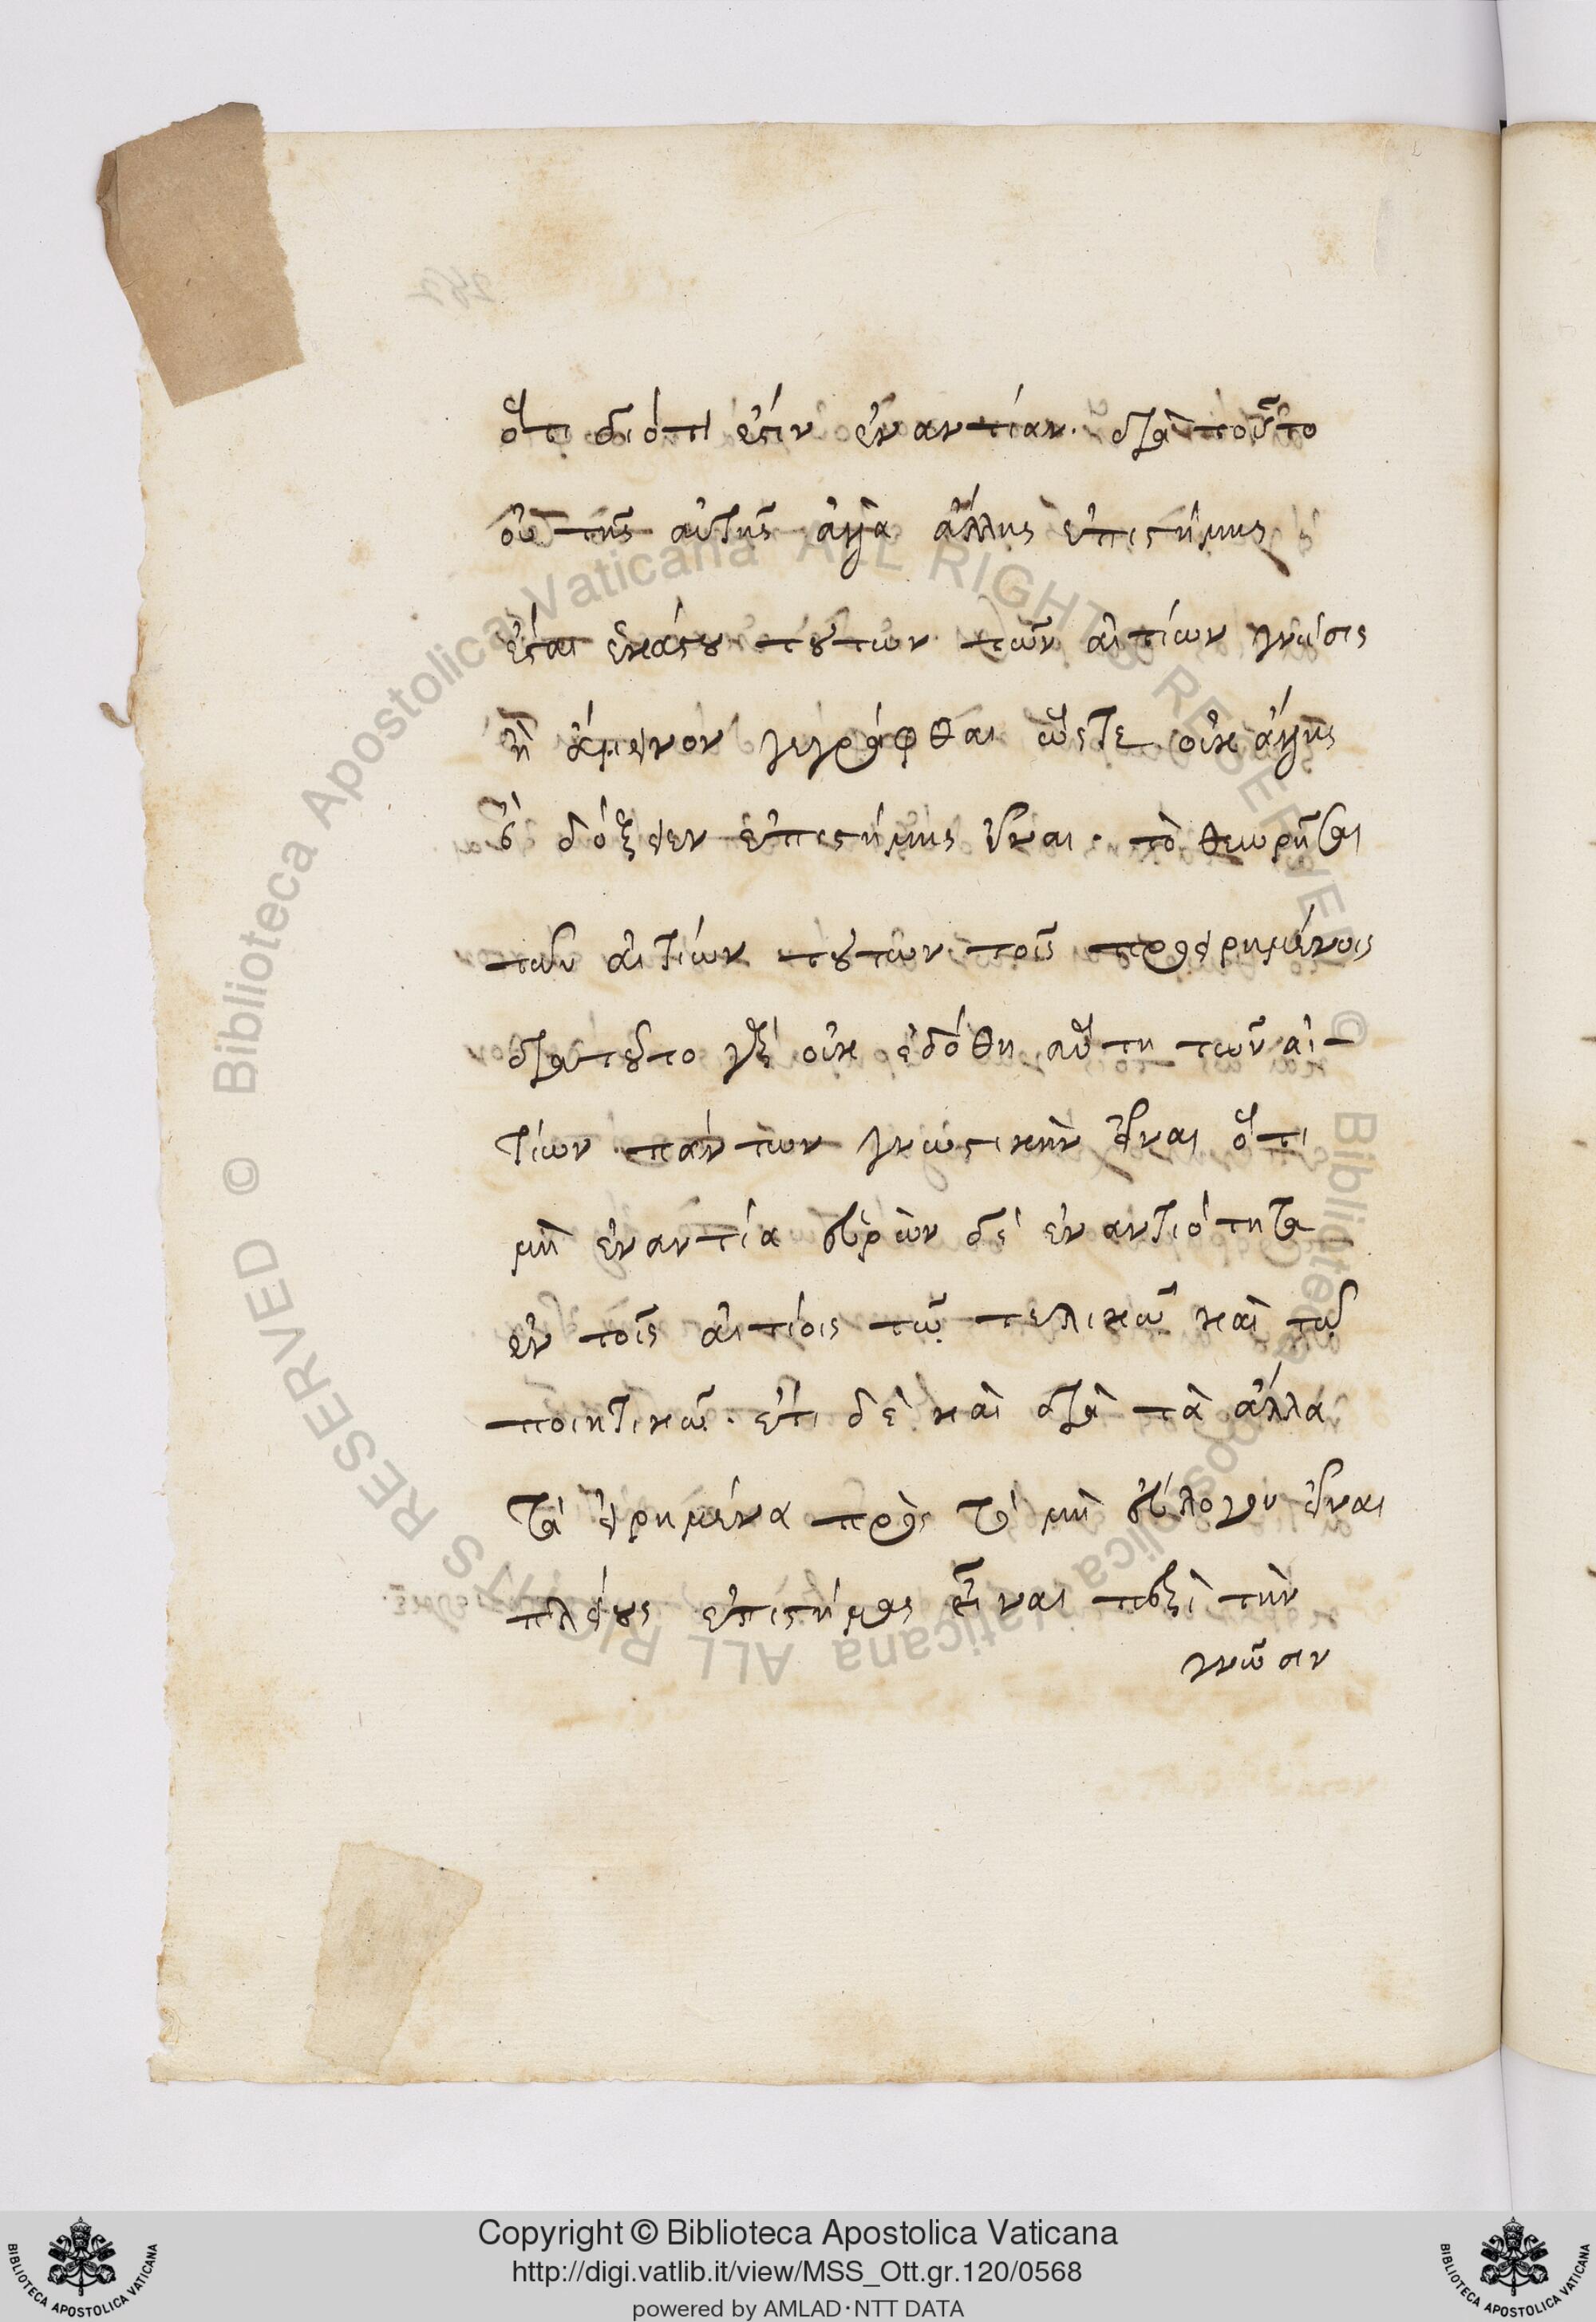 ὅτι διότι ἐστὶν ἐναντίαν· διὰ τοῦτο
οὐ τῆς αὐτῆς ἀλλὰ ἄλλης ἐπιστήμης
ἔσται ἑκάστου τούτων τῶν αἰτίων γνῶσις
ἢ ἄμεινον γεγράφθαι ὥστε οὐκ ἄλλης
δόξειεν ἐπιστήμης εἶναι· τὸ θεωρῆσαι
τῶν αἰτίων τούτων τοῖς προειρημένοις
διατοῦτο γὰρ οὐκ ἐδόθη αὕτη τῶν αἰ-
τίων πάντων γνωστικὴν εἶναι ὅτι
μὴ ἐναντία εὑρὼν δὲ ἐναντιότητα
ἐν τοῖς αἰτίοις τῷ τελικῷ καὶ τῷ
ποιητικῷ· ἔτι δὲ καὶ διὰ τὰ ἄλλα
τὰ εἰρημένα πρὸς τὸ μὴ εὔλογον εἶναι
πλείους ἐπιστήμας εἶναι περὶ τὴν
γνῶσιν
Copyright © Biblioteca Apostolica Vaticana
http://digi.vatlib.it/view/MSS_Ott.gr.120/0568
powered by AMLAD·NTT DATA
© Biblioteca Apostolica Vaticana ALL RIGHTS RESERVED
© Biblioteca Apostolica Vaticana ALL RIGHTS RESERVED
BIBLIOTECA APOSTOLICA VATICANA
BIBLIOTECA APOSTOLICA VATICANA